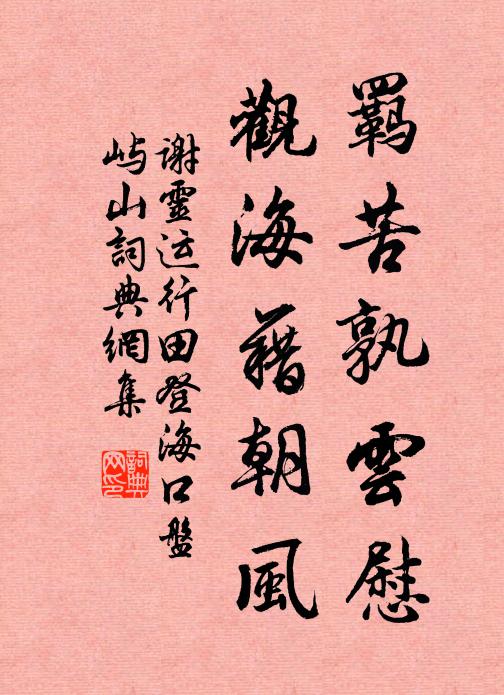 羈苦孰雲慰
觀海藉朝風
謝靈运行田登海口盤
屿山詞典網集
詞典网印